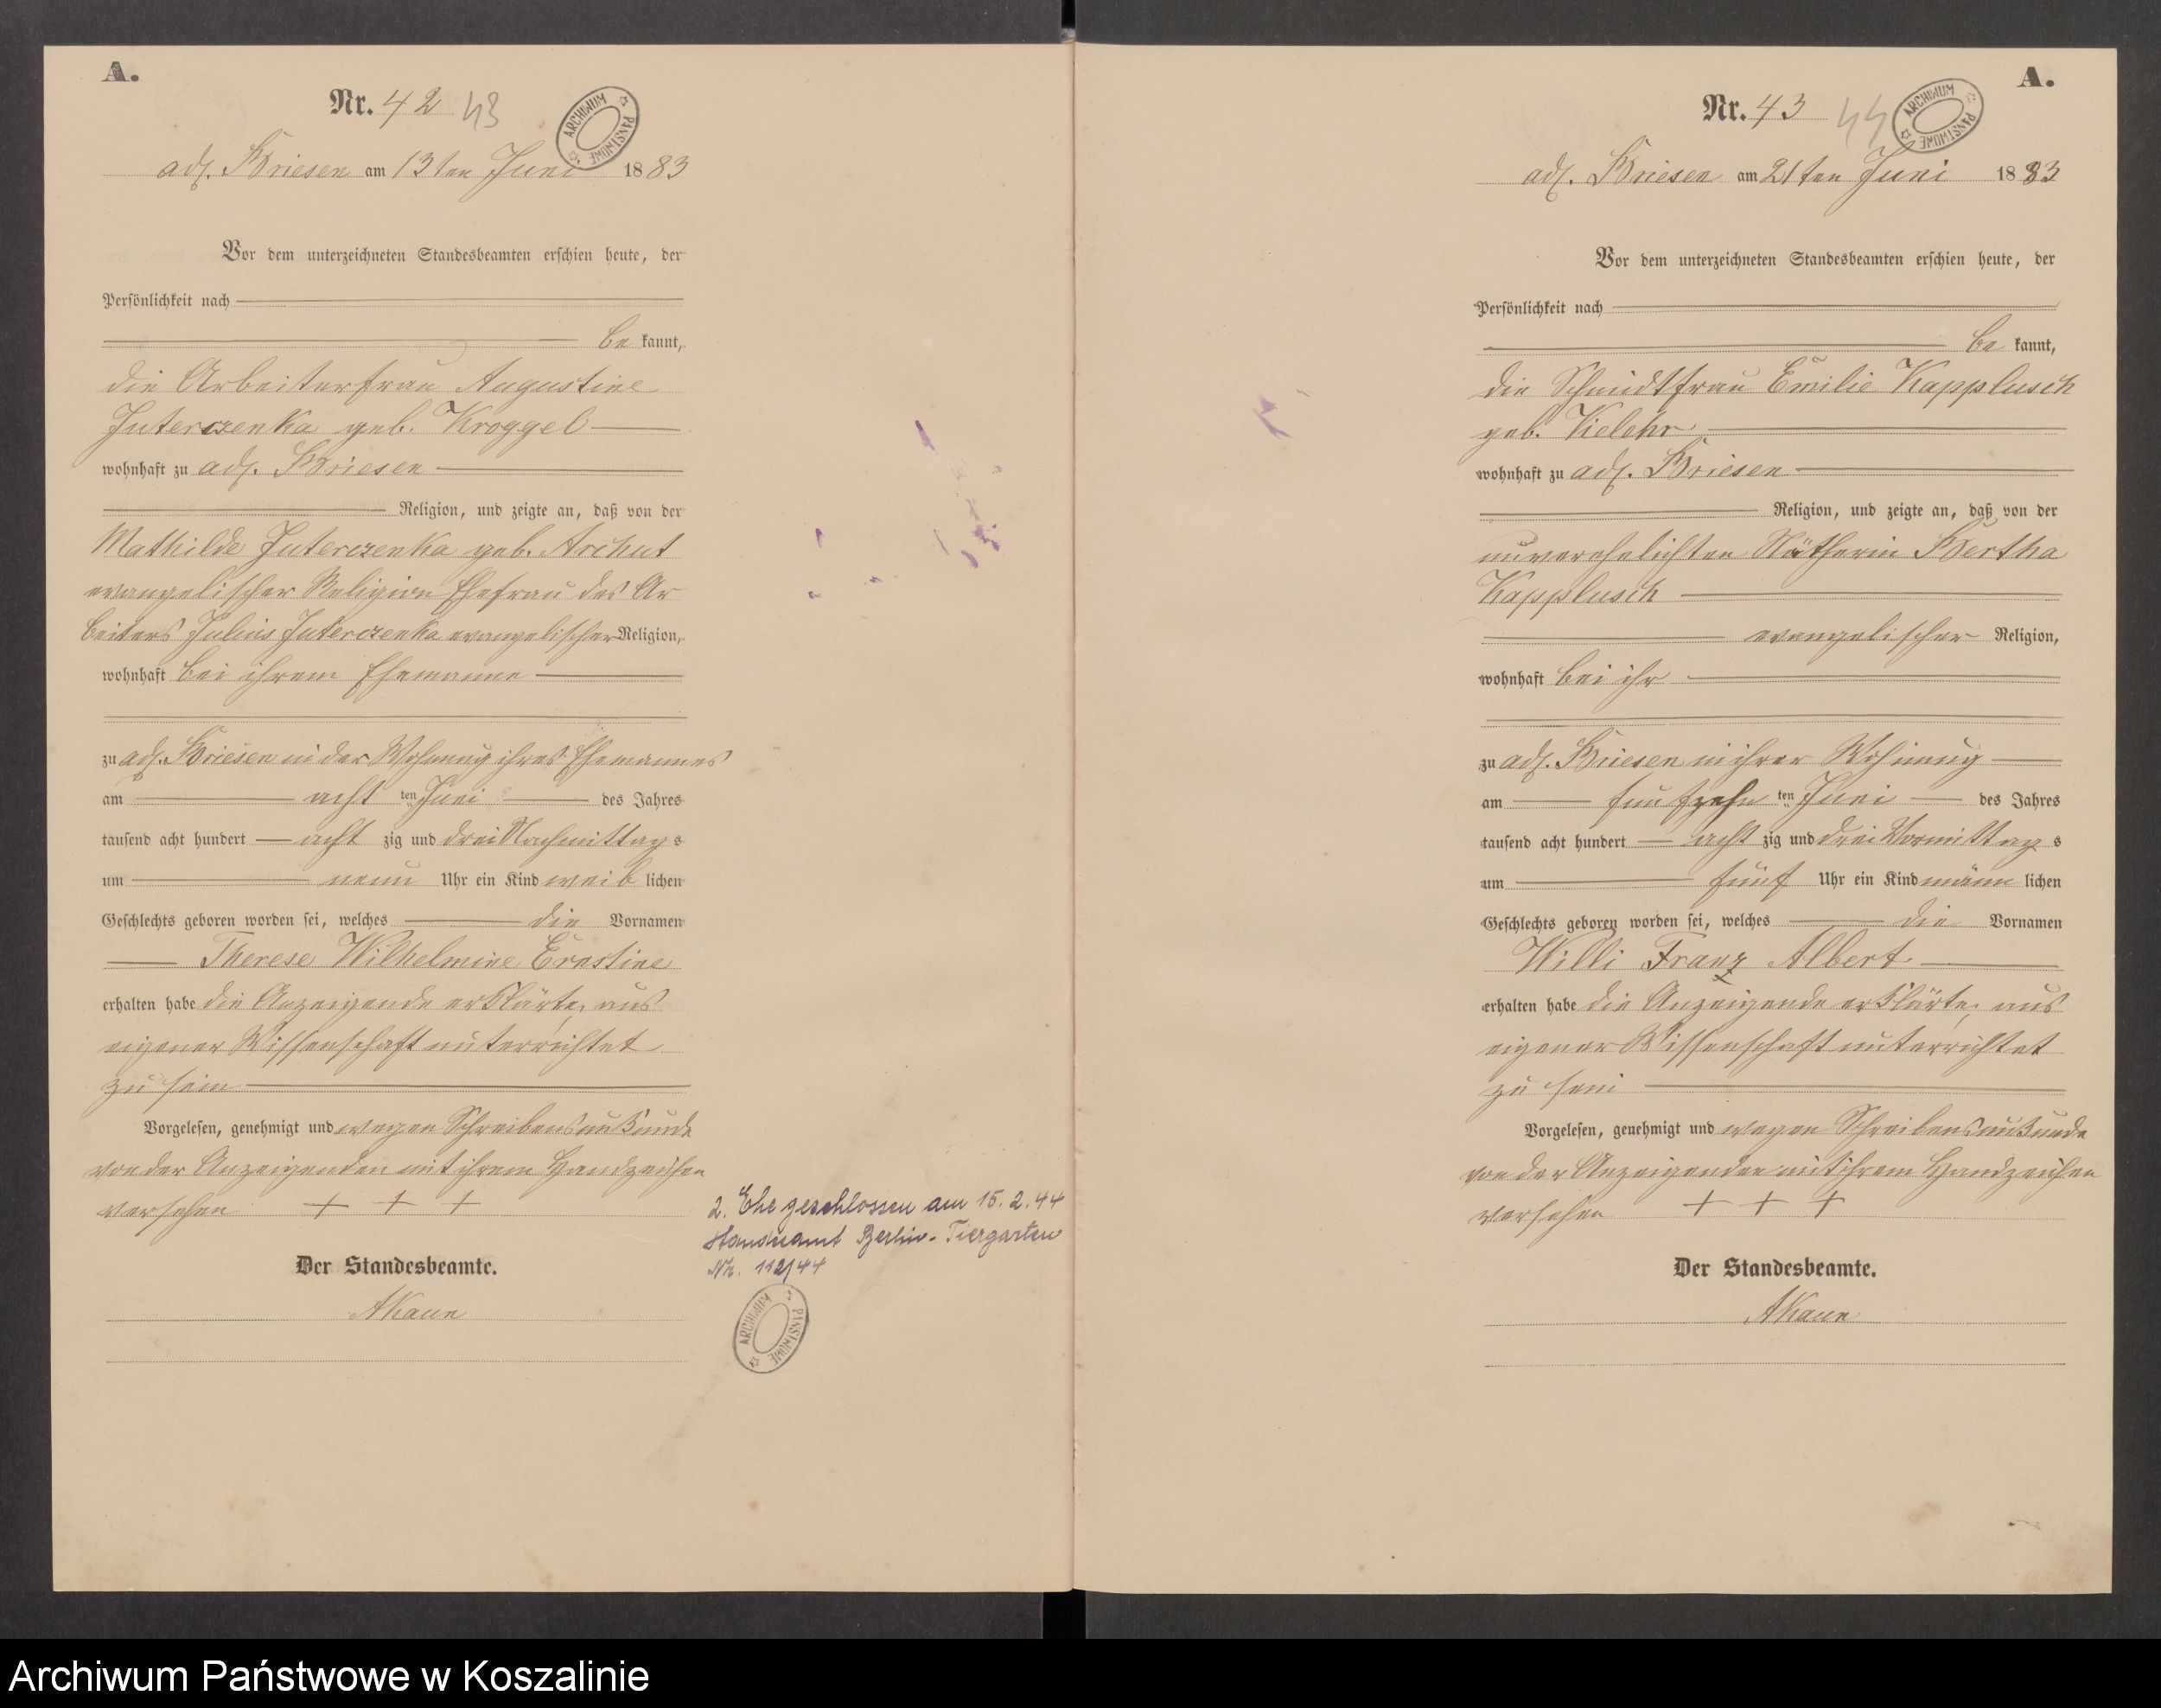 A.
Nr. 42 43
ARCHIWUM PAŃSTWOWE
adl. Briesen am 13ten Juni 1883
Vor dem unterzeichneten Standesbeamten erschien heute, der
Persönlichkeit nach
be kannt,
die Arbeiterfrau Augustine
Juterczenka geb. Kroggel
wohnhaft zu adl. Briesen
Religion, und zeigte an, daß von der
Mathilde Juterczenka geb. Archut
evangelischer Religion Ehefrau des Ar
beiters Julius Juterczenka evangelischer Religion,
wohnhaft bei ihrem Ehemanne
zu adl. Briesen in der Wohnung ihres Ehemannes
am acht ten Juni des Jahres
tausend acht hundert acht zig und drei Nachmittag s
um neun Uhr ein Kind weib lichen
Geschlechts geboren worden sei, welches die Vornamen
Therese Wilhelmine Ernstine
erhalten habe die Anzeigende erklärte, aus
eigener Wissenschaft unterrichtet
zu sein
Vorgelesen, genehmigt und wegen Schreibensunkunde
von der Anzeigenden mit ihrem Handzeichen
versehen + + +
Der Standesbeamte.
2. Ehe geschlossen am 15.2.44
Standesamt Berlin-Tiergarten
Nr. 112/44
ARCHIWUM PAŃSTWOWE
A.
Nr. 43 44
ARCHIWUM PAŃSTWOWE
adl. Briesen am 21ten Juni 1883
Vor dem unterzeichneten Standesbeamten erschien heute, der
Persönlichkeit nach
be kannt,
die Schmidtfrau Emilie Kapplusch
geb.
wohnhaft zu adl. Briesen
Religion, und zeigte an, daß von der
unverehelichten Nätherin Bertha
Kapplusch
evangelischer Religion,
wohnhaft bei ihr
zu adl. Briesen in ihrer Wohnung
am fünfzehn ten Juni des Jahres
tausend acht hundert acht zig und drei Vormittag s
um fünf Uhr ein Kind männ lichen
Geschlechts geboren worden sei, welches die Vornamen
Willi Franz Albert
erhalten habe die Anzeigende erklärte, aus
eigener Wissenschaft unterrichtet
zu sein
Vorgelesen, genehmigt und wegen Schreibensunkunde
von der Anzeigenden mit ihrem Handzeichen
versehen + + +
Der Standesbeamte.
Archiwum Państwowe w Koszalinie